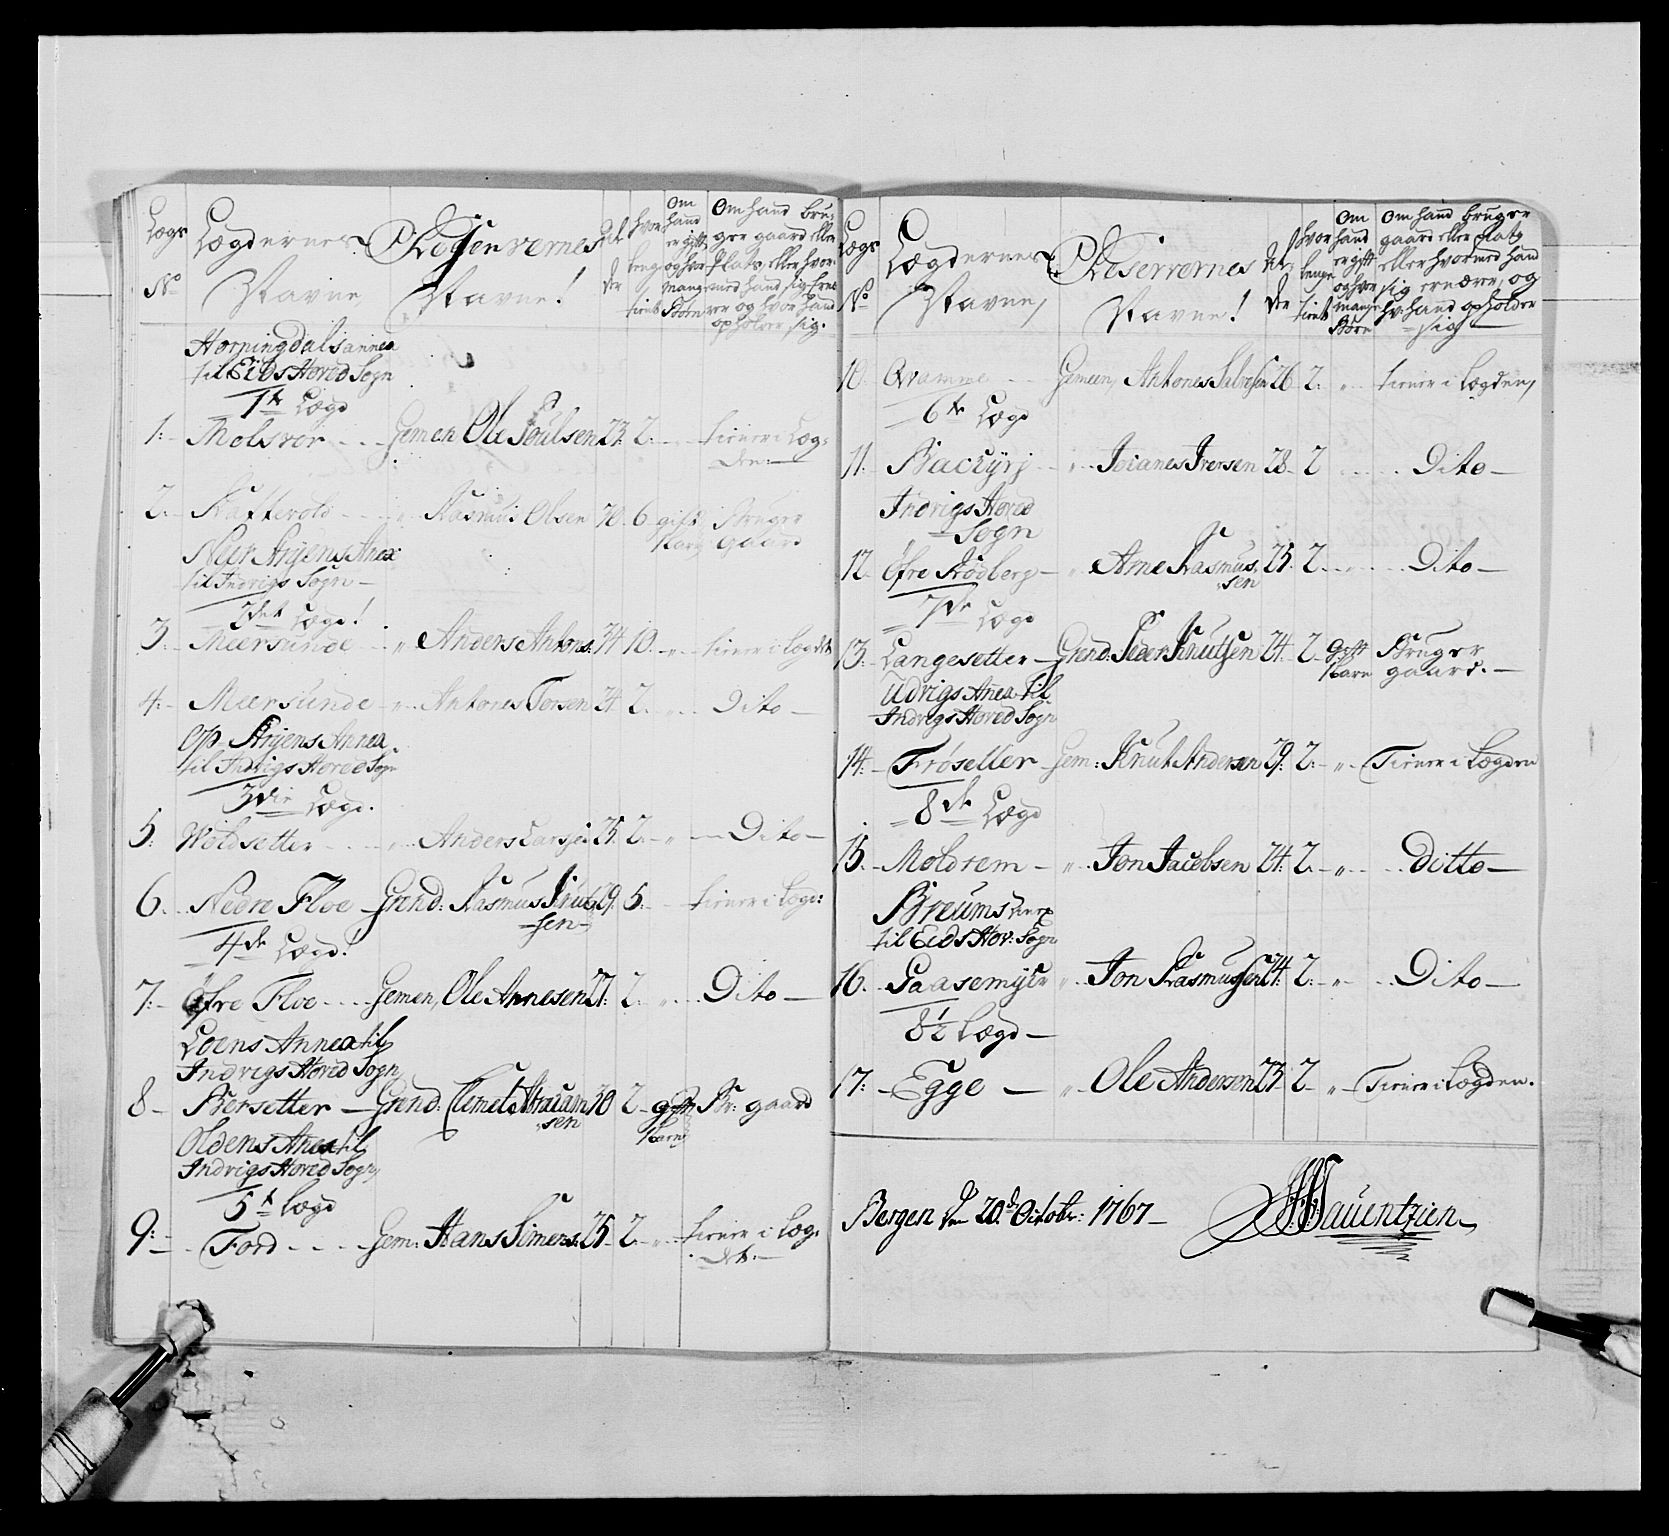 Lægs No
Lægdernes Navne
Reservernes Navne!
Alder
hvor lenge tient
Om hand er gift og hvor mange Børn
Om hand bruger gaard eller Plats eller hvormed hand sig ernerer og hvor hand opholder sig.
Horningdals annex
til Eids Hoved Sogn
1te Lægd
1: Melsvor Gemen Ole Poulsen 23. 2. " tiener i Læg:
den
2. Kattevold " Rasmus Olsen 30. 6. gift Bruger
1 barn gaard
Neer Strijens Anex
til Indvigs Sogn
2det Lægd!
3. Meersunde " Anders Antons: 34 10. " tiener i Lægdet
4. Meersunde " Antones Torsen 24 2. " Dito
Op Strijens Annex
til Indvigs Hoved Sogn
3die Lægd.
5. Woldsetter " Anders Larsen 25. 2. " Dito
6. Nedre Floe Grend: Rasmus Knud 29. 5. tiener i Lægd:
sen
4de Lægd!
7. Øfre Floe Gemen, Ole Annesen 27. 2. " Dito
Loens Annex til
Indvigs Hoved Sogn
8 Bersetter Grend: Clemet Abraam 30 2 gift Br: gaard
sen 1 barn
Oldens Anex til
Indvigs Hoved Sogn,
5te Lægd
9: Ford Gem: Hans Simens: 25. 2. " tiener i Læg:
det.
Lægs No
Lægdernes Navne,
Reservernes Navne!
Alder
hvor lenge tient
Om hand er gift og hvor mange Børn
Om hand bruger gaard eller Plats eller hvormed hand sig ernærer, og hv: hand opholder sig
10. Qvamme Gemeen, Antones Salvesen 26 2. " tiener i Lægden,
6te Lægd
11. " Joianes Iversen 28. 2 Dito
Indvigs Hoved
Sogn
12. Øfre Rødberg " Arne Rasmus 25. 2. Dito
sen
7de Lægd
13. Langesetter Grend: Peder Knutsen 24. 2. gift Bruger
1 barn gaard.
Udvigs Anex til
Indvigs Hoved Sogn
14. Frøseller Gem: Knut Andersen 29. 2. " Tiener i Lægden
8de Lægd
15. Moldrem " Jon Jacobsen 24. 2. " Ditto
Breums Anex
til Eids Hov: Sogn
16. Gaasemyr " Jon Rasmussen 24. 2. " Dito
8½ Lægd
17: Egge " Ole Andersen 23. 2. " Tiener i Lægden.
Bergen den 20de Octobr: 1767